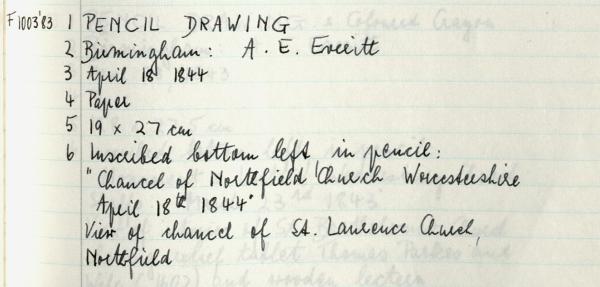 F1003'83 1 PENCIL DRAWING
2 Birmingham: A. E. Everitt
3 April 18 1844
4 Paper
5 19 x 27 cm
6 Inscribed bottom left in pencil:
"Chancel of Northfield Church Worcestershire
April 18th 1844"
View of chancel of St. Laurence Church,
Northfield